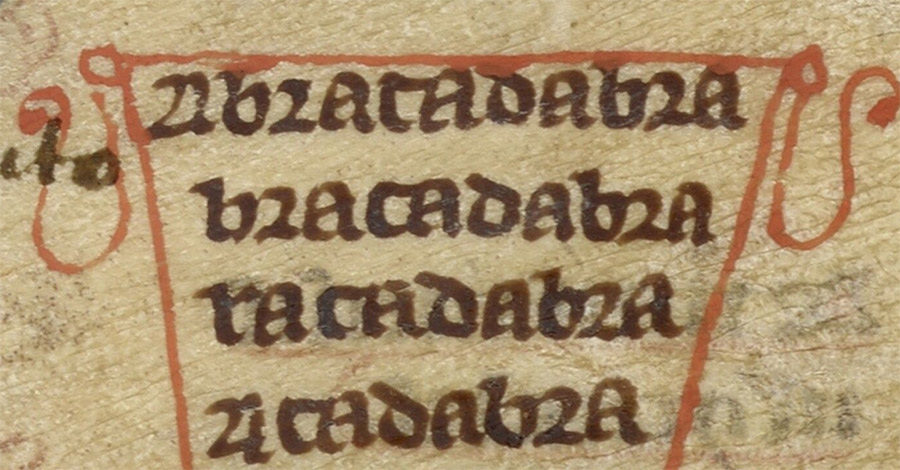 Abracadabra
bracadabra
racadabra
acadabra